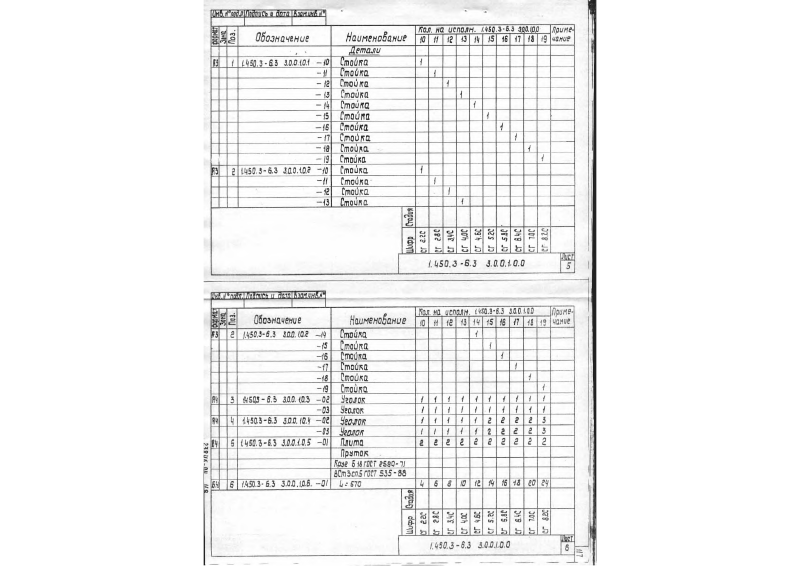 Инв.№подл. Подпись и дата Взам.инв.№
Формат Зона Поз. Обозначение Наименование Кол. на исполн. 1.450.3-6.3 3.0.0.1.0.0 Приме-чание
10 11 12 13 14 15 16 17 18 19
Детали
1 1.450.3-6.3 3.0.0.1.0.1 -10 Стойка 1
-11 Стойка 1
-12 Стойка 1
-13 Стойка 1
-14 Стойка 1
-15 Стойка 1
-16 Стойка 1
-17 Стойка 1
-18 Стойка 1
-19 Стойка 1
2 1.450.3-6.3 3.0.0.1.0.2 -10 Стойка 1
-11 Стойка 1
-12 Стойка 1
-13 Стойка 1
Шифр Стадия
СГ 2.2С СГ 2.8С СГ 3.4С СГ 4.0С СГ 4.6С СГ 5.2С СГ 5.8С СГ 6.4С СГ 7.0С СГ 8.2С
1.450.3-6.3 3.0.0.1.0.0 Лист 5
Инв.№подл. Подпись и дата Взам.инв.№
Формат Зона Поз. Обозначение Наименование Кол. на исполн. 1.450.3-6.3 3.0.0.1.0.0 Приме-чание
10 11 12 13 14 15 16 17 18 19
2 1.450.3-6.3 3.0.0.1.0.2 -14 Стойка 1
-15 Стойка 1
-16 Стойка 1
-17 Стойка 1
-18 Стойка 1
-19 Стойка 1
А4 3 1.450.3-6.3 3.0.0.1.0.3 -02 Уголок 1 1 1 1 1 1 1 1 1 1
-03 Уголок 1 1 1 1 1 1 1 1 1 1
А4 4 1.450.3-6.3 3.0.0.1.0.4 -02 Уголок 1 1 1 1 1 2 2 2 2 3
-03 Уголок 1 1 1 1 1 2 2 2 2 3
5 1.450.3-6.3 3.0.0.1.0.5 -01 Плита 2 2 2 2 2 2 2 2 2 2
Пруток
ГОСТ 2590-71
ВСт3сп5 ГОСТ 535-88
Б4 6 1.450.3-6.3 3.0.0.1.0.6 -01 L=670 4 6 8 10 12 14 16 18 20 24
Шифр Стадия
СГ 2.2С СГ 2.8С СГ 3.4С СГ 4.0С СГ 4.6С СГ 5.2С СГ 5.8С СГ 6.4С СГ 7.0С СГ 8.2С
1.450.3-6.3 3.0.0.1.0.0 Лист 6